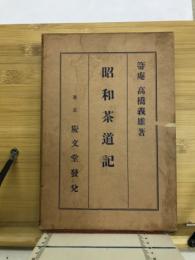 箒庵 高橋義雄著
昭和茶道記
東京 慶文堂發兌